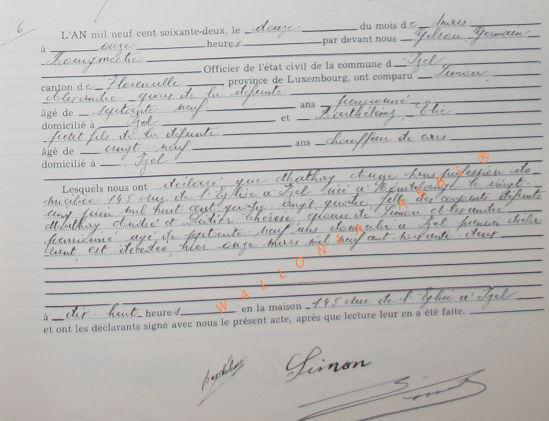 6
L'AN mil neuf cent soixante-deux, le douze du mois de mars
à onze heures par devant nous Gilson Germain
Bourgmestre Officier de l'état civil de la commune d'Izel
canton de Florenville province de Luxembourg, ont comparu Simon
Alexandre époux de la défunte
âgé de septante neuf ans pensionné
domicilié à Izel et Barthélemy Elie
petit fils de la défunte
âgé de vingt neuf ans chauffeur de cars
domicilié à Izel
Lesquels nous ont déclaré que Mathay sans profession do-
micilié 145 rue de l'Eglise à Izel née à le vingt-
juin mil huit cent quatre-vingt quatre fille des conjoints défunts
Mathay André et Thérèse, épouse de Simon Alexandre
pensionné âgé de septante neuf ans domicilié à Izel premier décla-
rant, est décédée hier onze mars mil neuf cent soixante deux
à dix-huit heures en la maison 145 rue de l'Eglise à Izel
et ont les déclarants signé avec nous le présent acte, après que lecture leur en a été faite.
Simon
WALLONIA